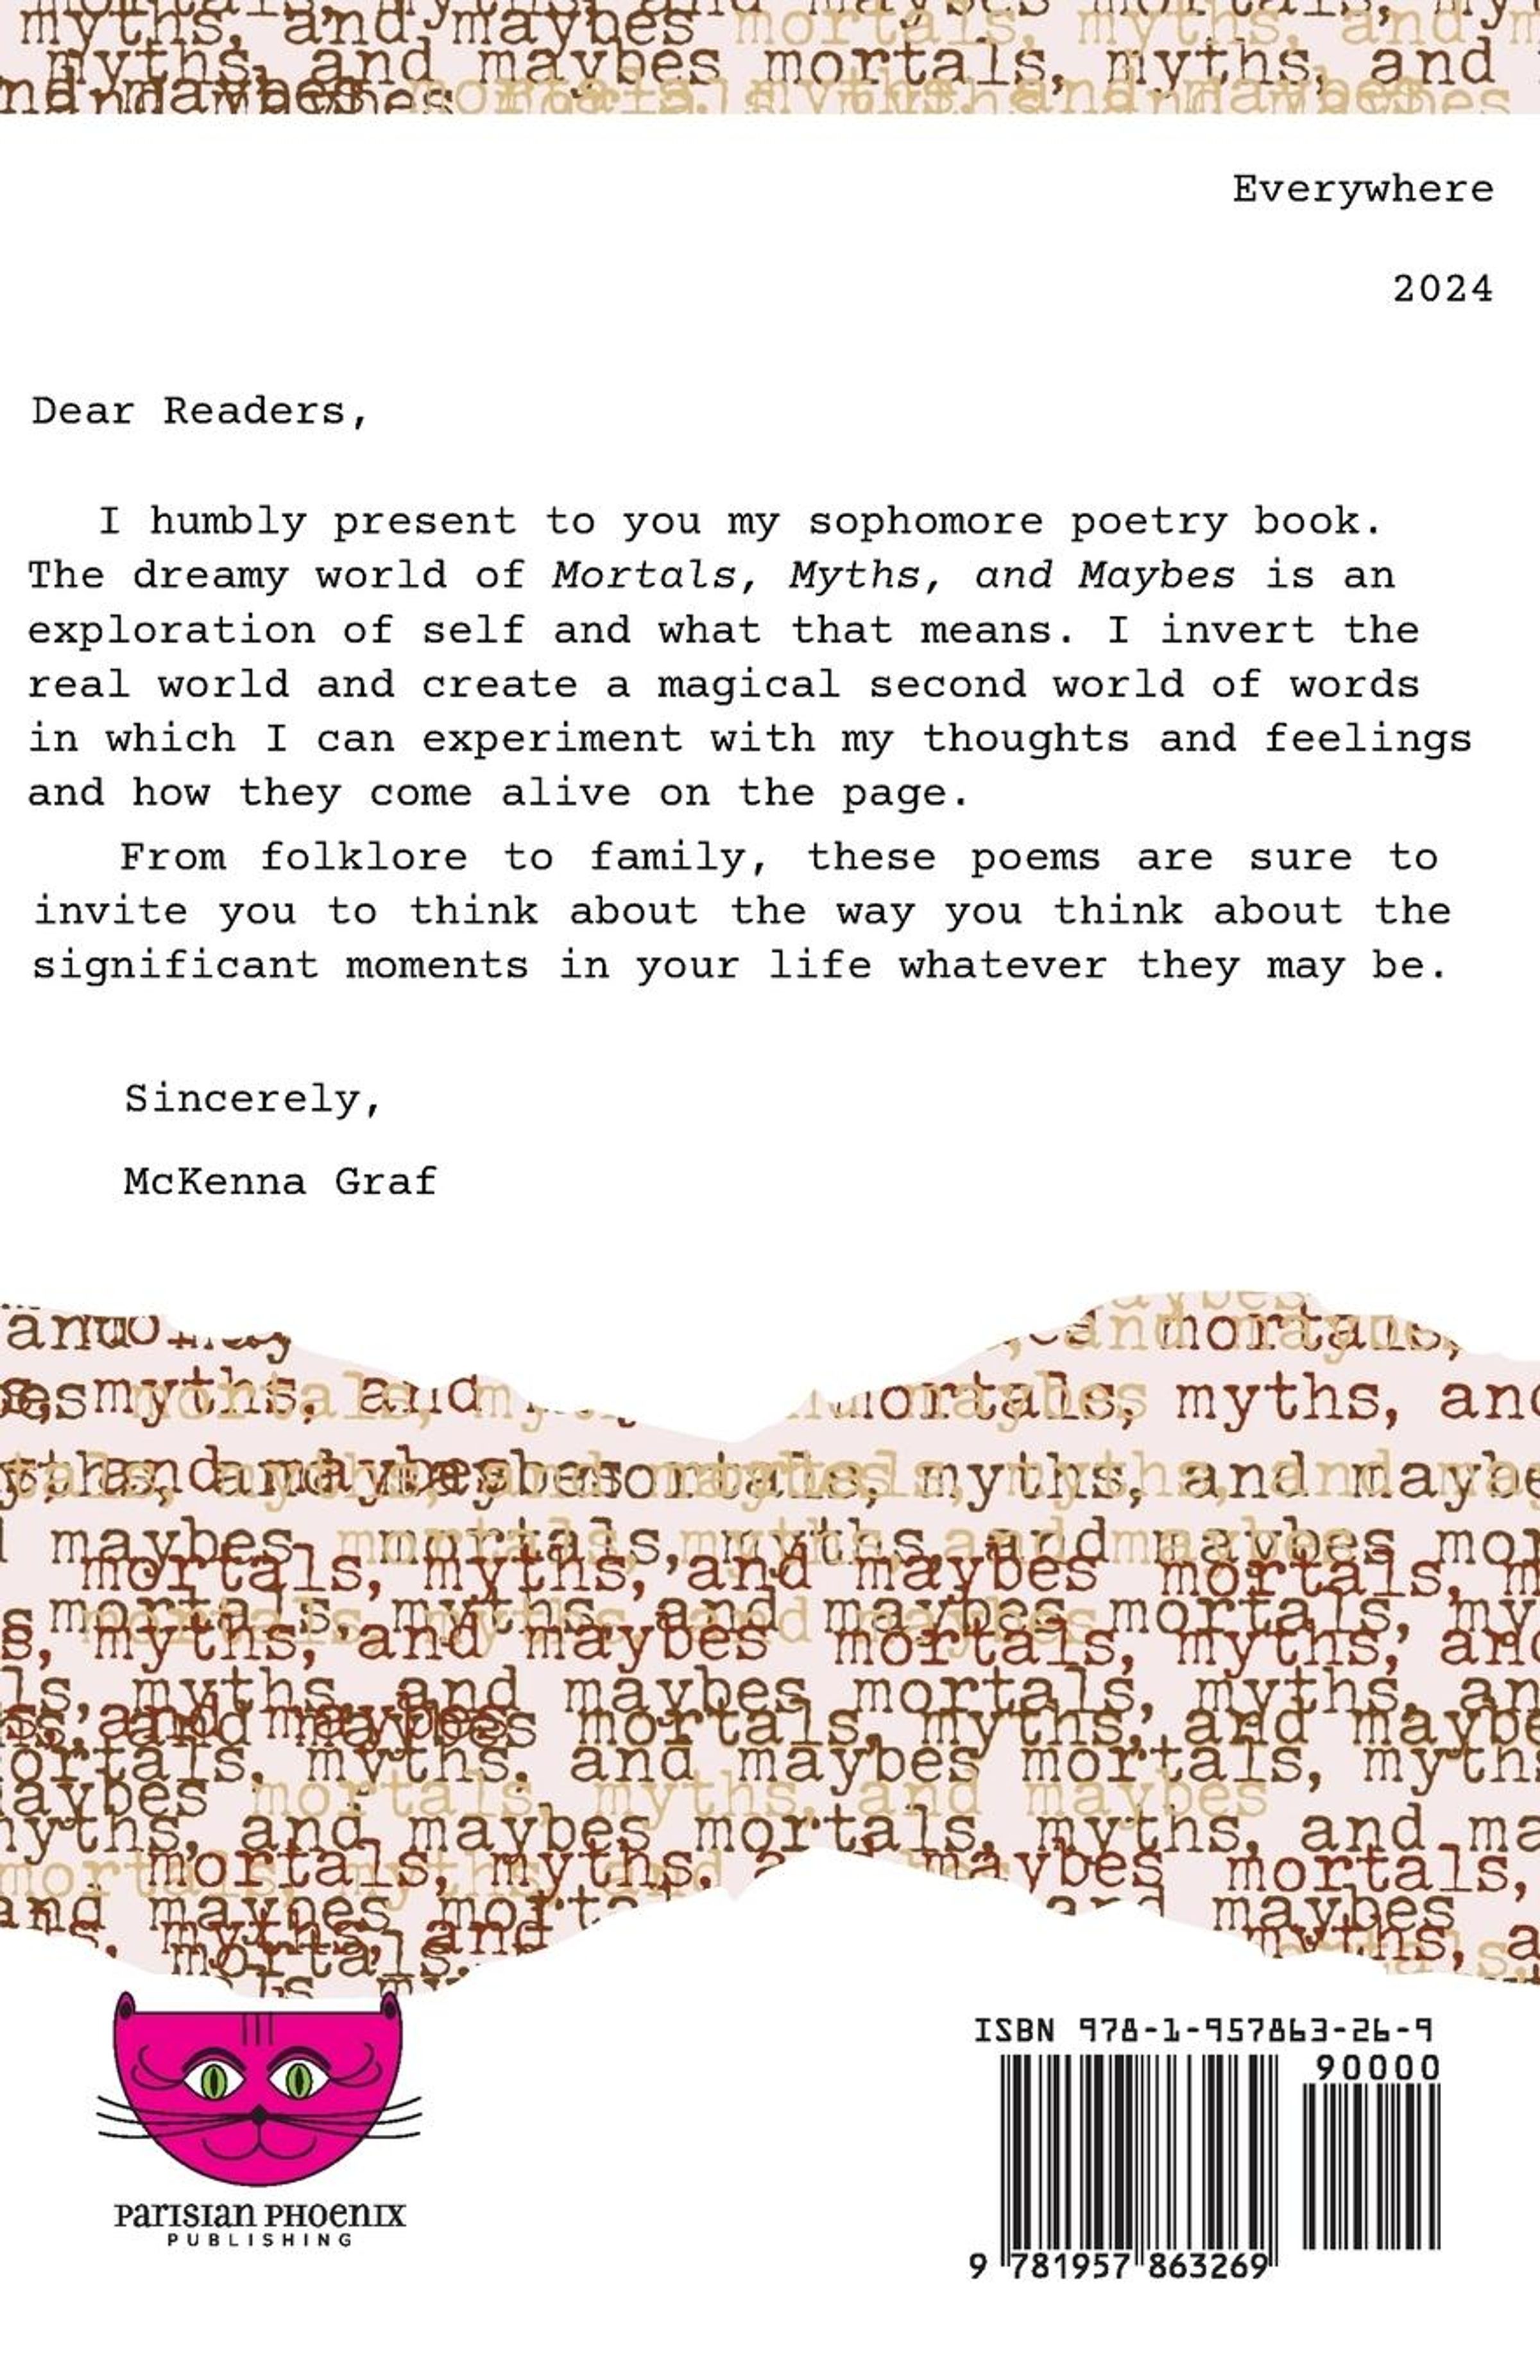 myths, and maybes mortals, myths, and m
myths, and maybes mortals, myths, and
Everywhere
2024
Dear Readers,
I humbly present to you my sophomore poetry book.
The dreamy world of Mortals, Myths, and Maybes is an
exploration of self and what that means. I invert the
real world and create a magical second world of words
in which I can experiment with my thoughts and feelings
and how they come alive on the page.
From folklore to family, these poems are sure to
invite you to think about the way you think about the
significant moments in your life whatever they may be.
Sincerely,
McKenna Graf
myths, and mortals, myths, and
myths, and maybe
maybes mortals, myths, and maybes mor
mortals, myths, and maybes mortals, m
mortals, myths, and maybes mortals, my
s, myths, and maybes mortals, myths, and
ls, myths, and maybes mortals, myths, an
mortals, myths, and maybe
ortals, myths, and maybes mortals, myths
aybes mortals, myths, and maybes
myths, and maybes mortals, myths, and ma
mortals, myths, maybes mortals,
and maybes morta and maybes
myths, and myths, a
mortals,
ISBN 978-1-957863-26-9
90000
9 781957 863269
Parisian Phoenix
PUBLISHING